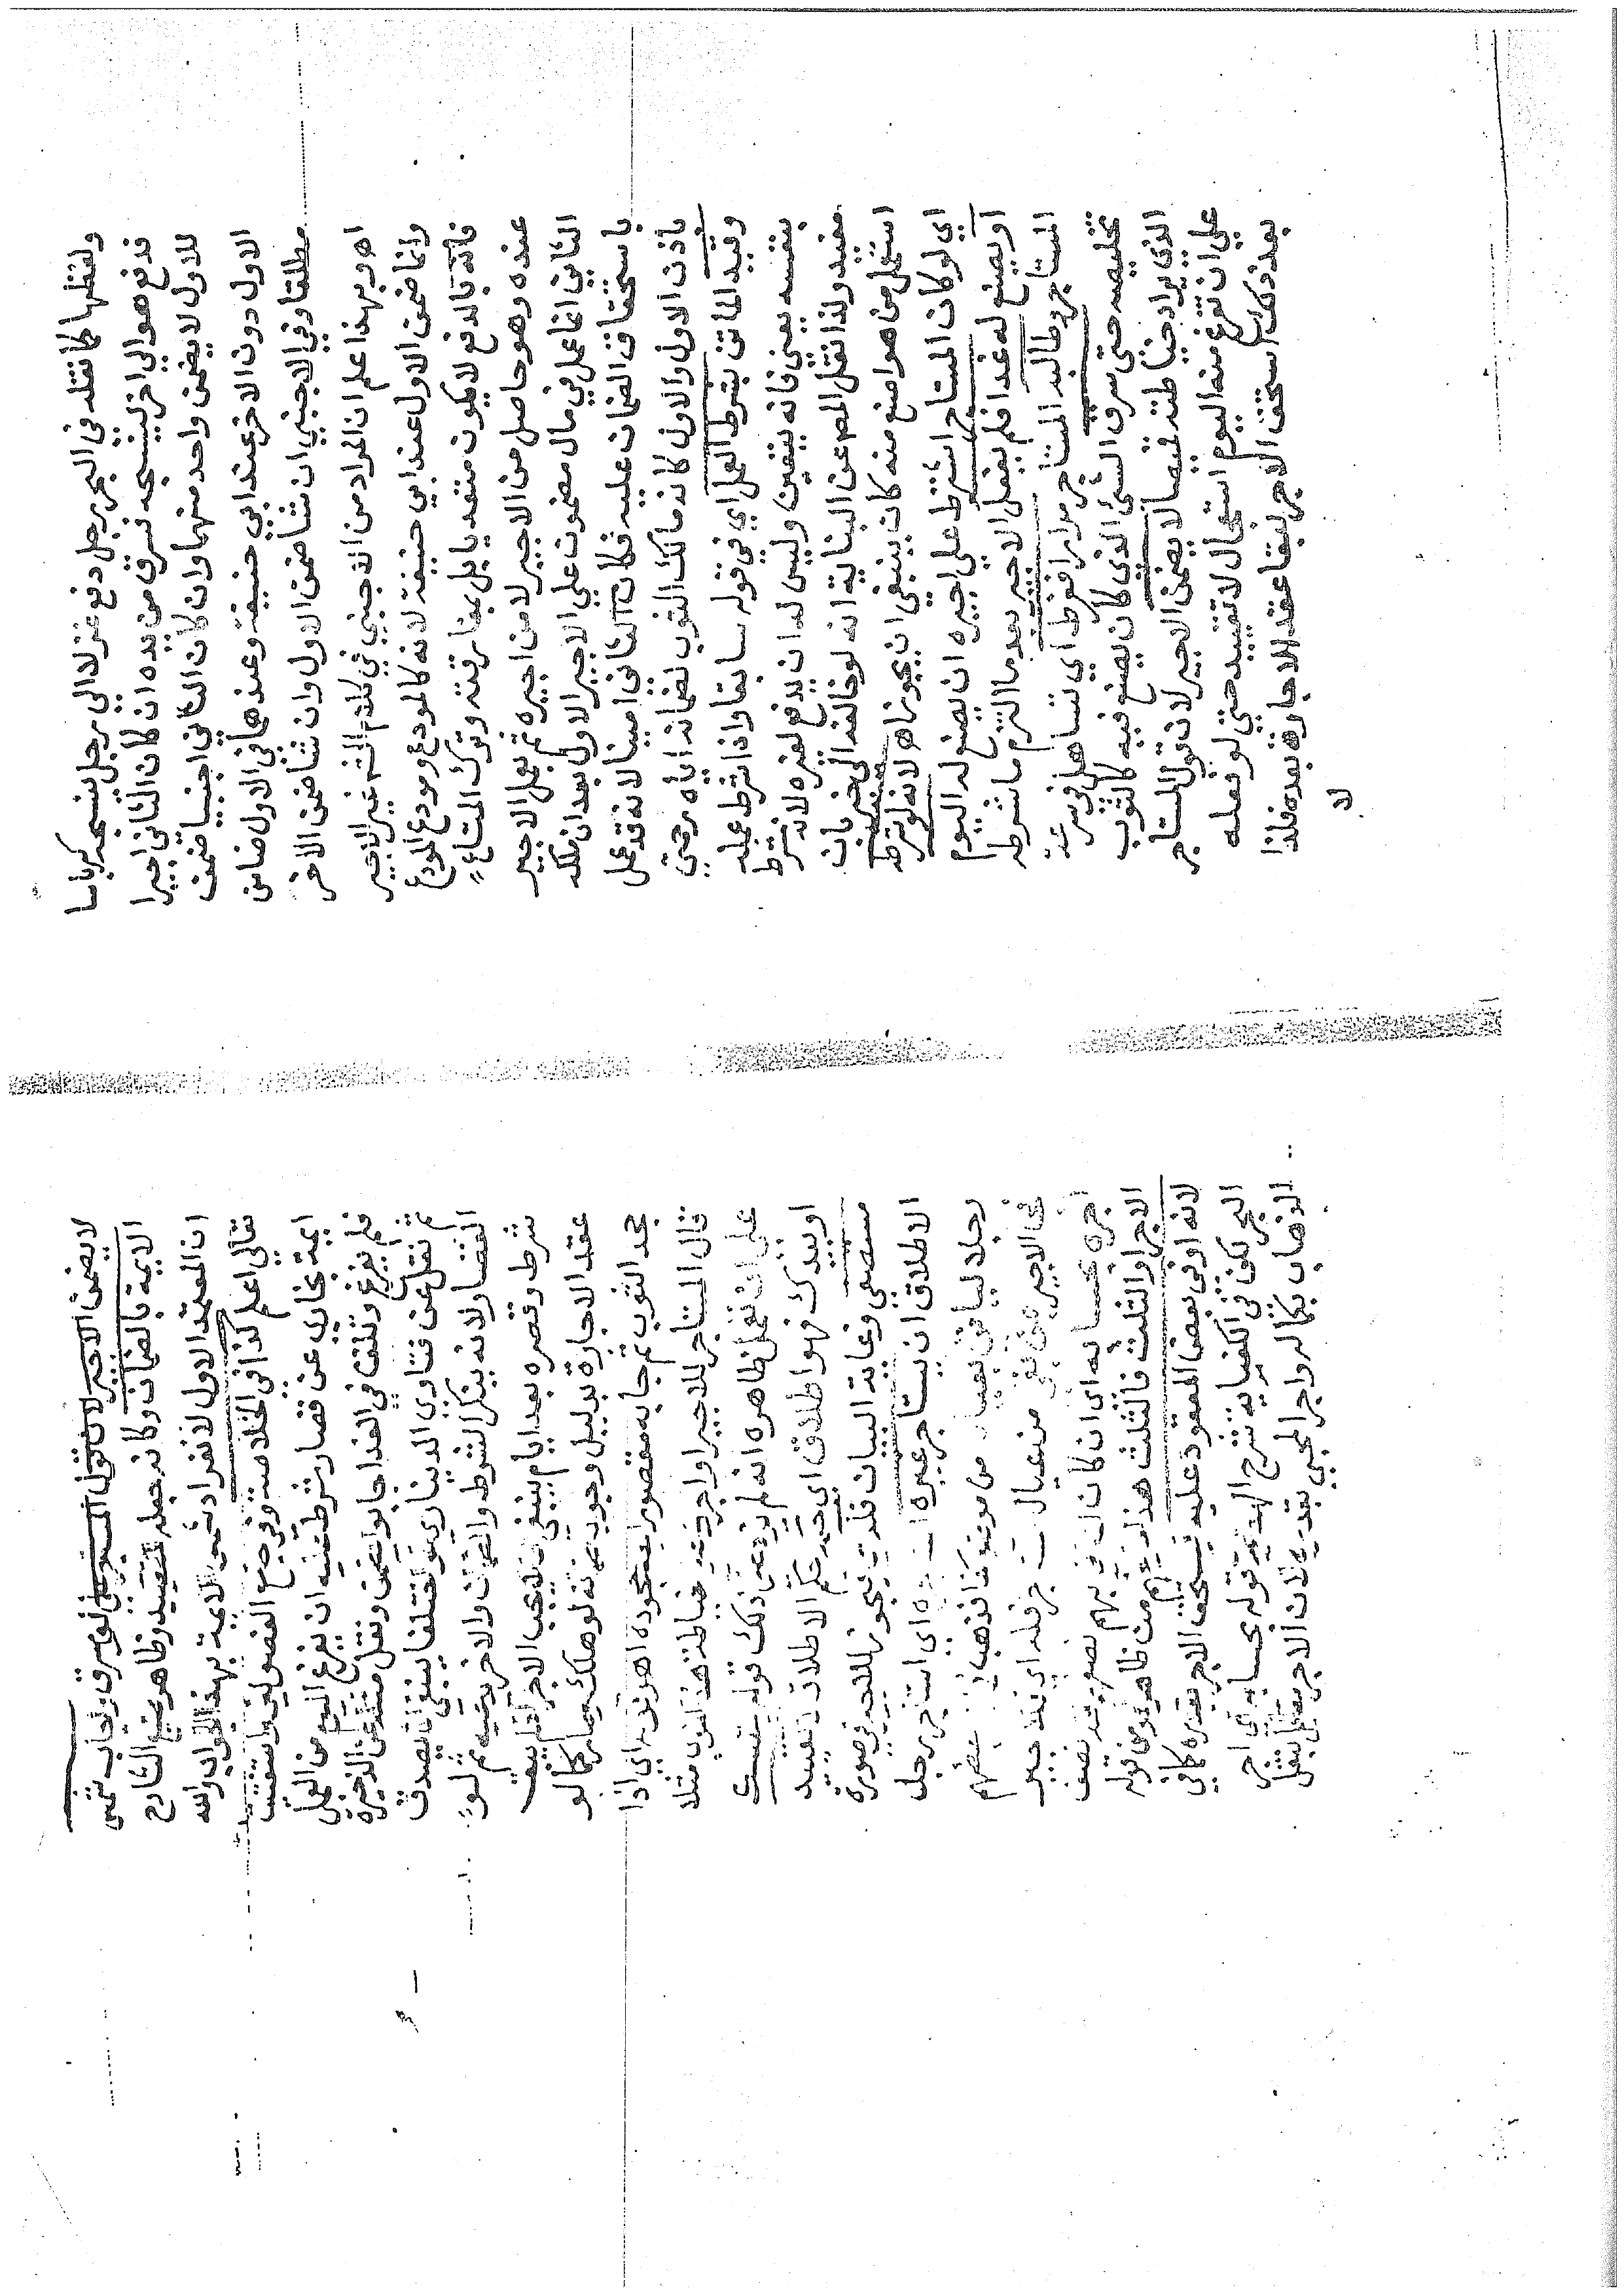 ولفظها كما نقله في البحر رجل دفع غزلا الي رجل ينسجه كرباسا
فدفع هو الي اخر لينسجه فسرق من يده ان كان الثاني اجيرا
للاول لا يضمن واحد منهما وان كان الثاني اجنبيا ضمن
الاول دون الاخر عند ابي حنيفة وعندهما في الاول ضامن
مطلقا وفي الاجنبي ان شا ضمن الاول وان شا ضمن الاخر
اهو بهذا علم ان المراد من الاجنبي في كلام الش غير الاجير
وانما ضمن الاول عند ابي حنيفة لانه كالمودع ومودع المودع
فانه بالدفع لا يكون متعديا بل بمفارقته وترك المتاع
عنده وهو حاصل من الاجير لا من اجيره ثم بعمل الاجير
الثاني انما عمل في مال مضمون علي الاجير الاول بعد ان ملكه
باستحقاق الضمان عليه فكان الثاني امينا لانه قد عمل
باذن الاول والاول كانه مالك الثوب لضمانه اياه رحمتي
وقيد الماتن بشرط العمل اي في قوله سابقا واذا شرط عمله
بنفسه يعني فانه يتعين وليس له ان يدفع لغيره لانه شرط
مفيد ولذا نقل المص عن البناية انه لو خالفه الي خير بان
استعمل من هو امنع منه كان ينبغي ان يجوز اهو لانه لو شرطه
اي لو كان المستاجر اشترط علي اجيره ان يصنع له اليوم
او يصنع له غدا فلم يفعل الاجير بعد ما التزم ما شرطه
المستاجر وطالبه المستاجر مرارا ففرط اي تساهل في سرعة
تخليصه حتي سرق الشي الذي كان يصنع فيه كالثوب
الذي يراد خياطته قيصا لا يضمن الاجير لان قول المستاجر
علي ان تفرغ منه اليوم استعجال لا تقييد حتي لو فعله
بعد ذلك استحق الاجر لبقا عقد الاجارة بعده فلذا
لا
لا يضمن الاجير لان قول المستاجر
الايمة بالضمان وكانه جعله للتقييد وظاهر صنع الشارح
ان المعتمد الاول لانفراد شمس الايمة بهذا الجواب والله
تعالي اعلم كذا في الخلاصة وفي جامع الفصولين واستفتيت
ايمة بخاري عن قصار شرط عليه ان يفرغ اليوم من العمل
فلم يفرغ وتلف في الغد اجابوا يضمن ونقل مثله عن الذخيرة
ثم نقل عن فتاوي الديناري لو اختلفا ينبغي ان يصدق
القصار لانه ينكر الشرط والضمان والاخر يدعيه ثم لو
شرط وقصره بعد ايام ينبغي ان لا يجب الاجر اذ لم يبق
عقد الاجارة بدليل وجوب ضمانه لو هلك وصار كما لو
جحد الثوب ثم جا به مقصورا بعد جحوده اهو قوله اي اذا
قال المستاجر للاجير اواجرتك لخياطة هذا الثوب مثلا
علي ان تعمل ظاهره انه لم يزد علي ذلك قوله بنفسك
او بيدك فهو اطلاق اي حكمه حكم الاطلاق لا التقييد
مستصفي وغاية البيان فلذا يجوز للاجير في صورة
الاطلاق ان يستاجر غيره اي استاجر رجل
رجلا لياتي بعياله من موضع كذا فذهب بعضهم
فجا الاجير بمن بقي من عيال المستاجر فله اي للاجير
اجره بحسابه اي ان كان الذي اتي بهم نصف عددهم نصف
الاجر او الثلث فالثلث هذا ما يفهم من ظاهر قوله
لانه اوفي بعض المعقود عليه فيستحق الاجر بقدره كما في
البحر لكن في الكفاية شرح الهداية قوله بحسابه اي اجر
الذهاب بكماله واجر المجي بقدره لان الاجر مقابل بنقل